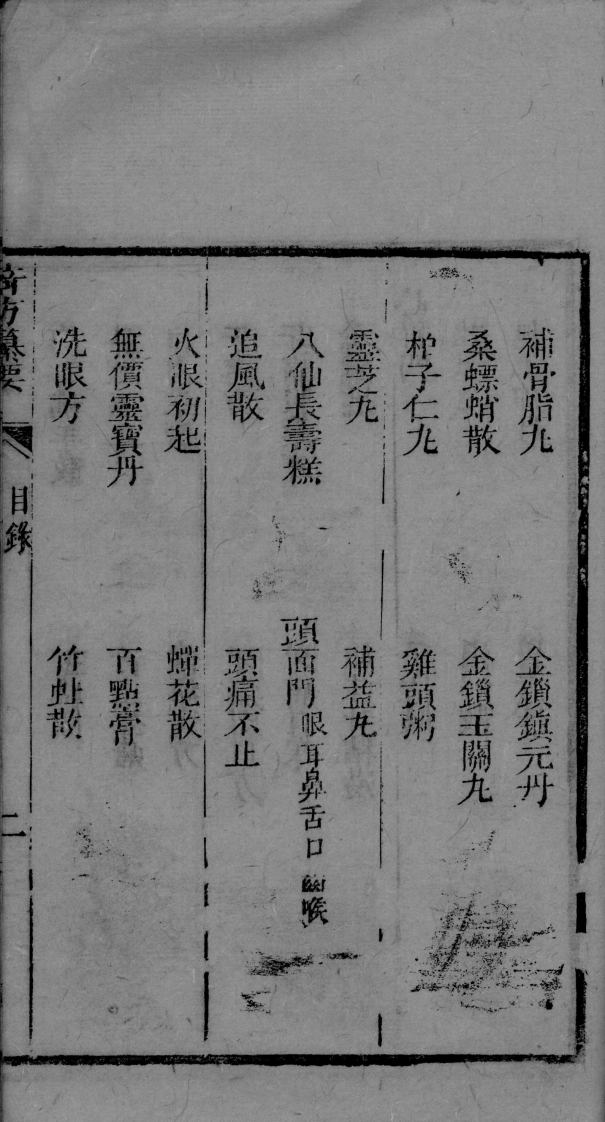 補骨脂丸 金鎖鎮元丹
桑螵蛸散 金鎖玉關丸
柏子仁丸 雞頭粥
靈芝丸 補益丸
八仙長壽糕 頭面門 眼耳鼻舌口喉
追風散 頭痛不止
火眼初起 蟬花散
無價靈寶丹 百點膏
洗眼方 竹蛀散
方纂要 目錄 二